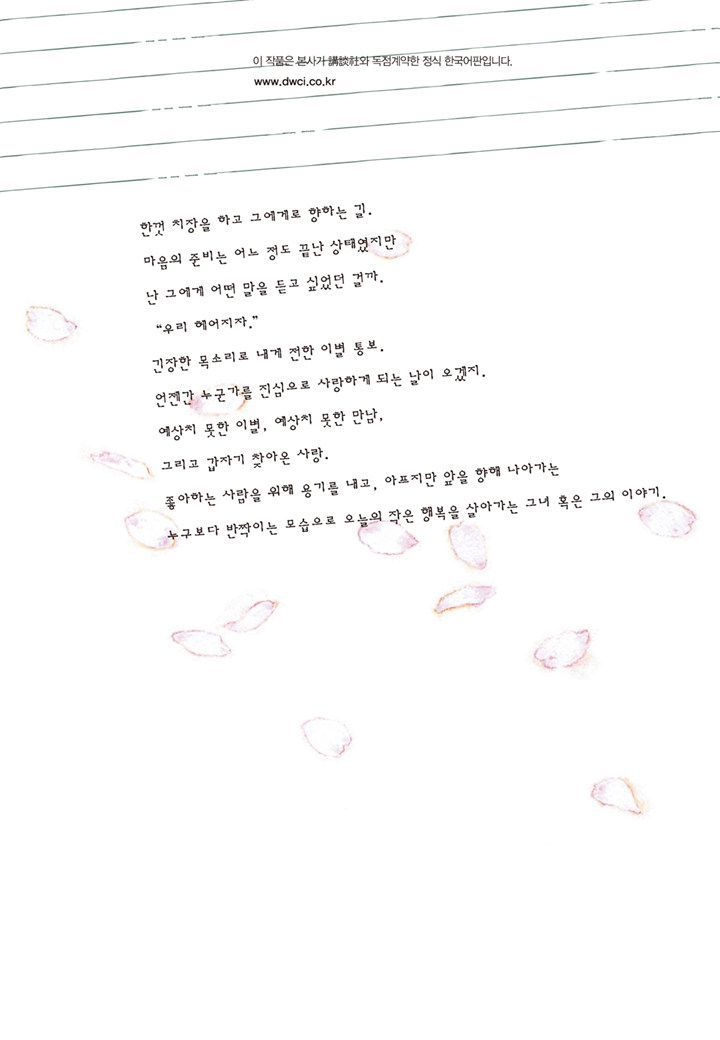 이 작품은 본사가 講談社와 독점계약한 정식 한국어판입니다.
www.dwci.co.kr
한껏 치장을 하고 그에게로 향하는 길.
마음의 준비는 어느 정도 끝난 상태였지만
난 그에게 어떤 말을 듣고 싶었던 걸까.
“우리 헤어지자.”
긴장한 목소리로 내게 전한 이별 통보.
언젠간 누군가를 진심으로 사랑하게 되는 날이 오겠지.
예상치 못한 이별, 예상치 못한 만남,
그리고 갑자기 찾아온 사랑.
좋아하는 사람을 위해 용기를 내고, 아프지만 앞을 향해 나아가는
누구보다 반짝이는 모습으로 오늘의 작은 행복을 살아가는 그녀 혹은 그의 이야기.